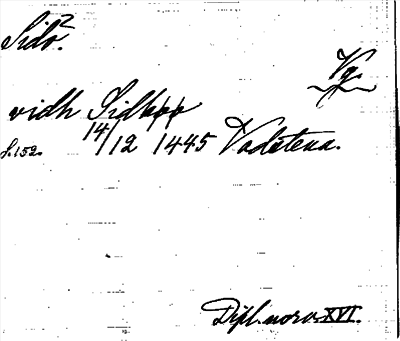 Sidö²
Vg.
vidh Sidhøø
S. 152. 14/12 1445 Vadstena.
Dipl. norv. XVI.